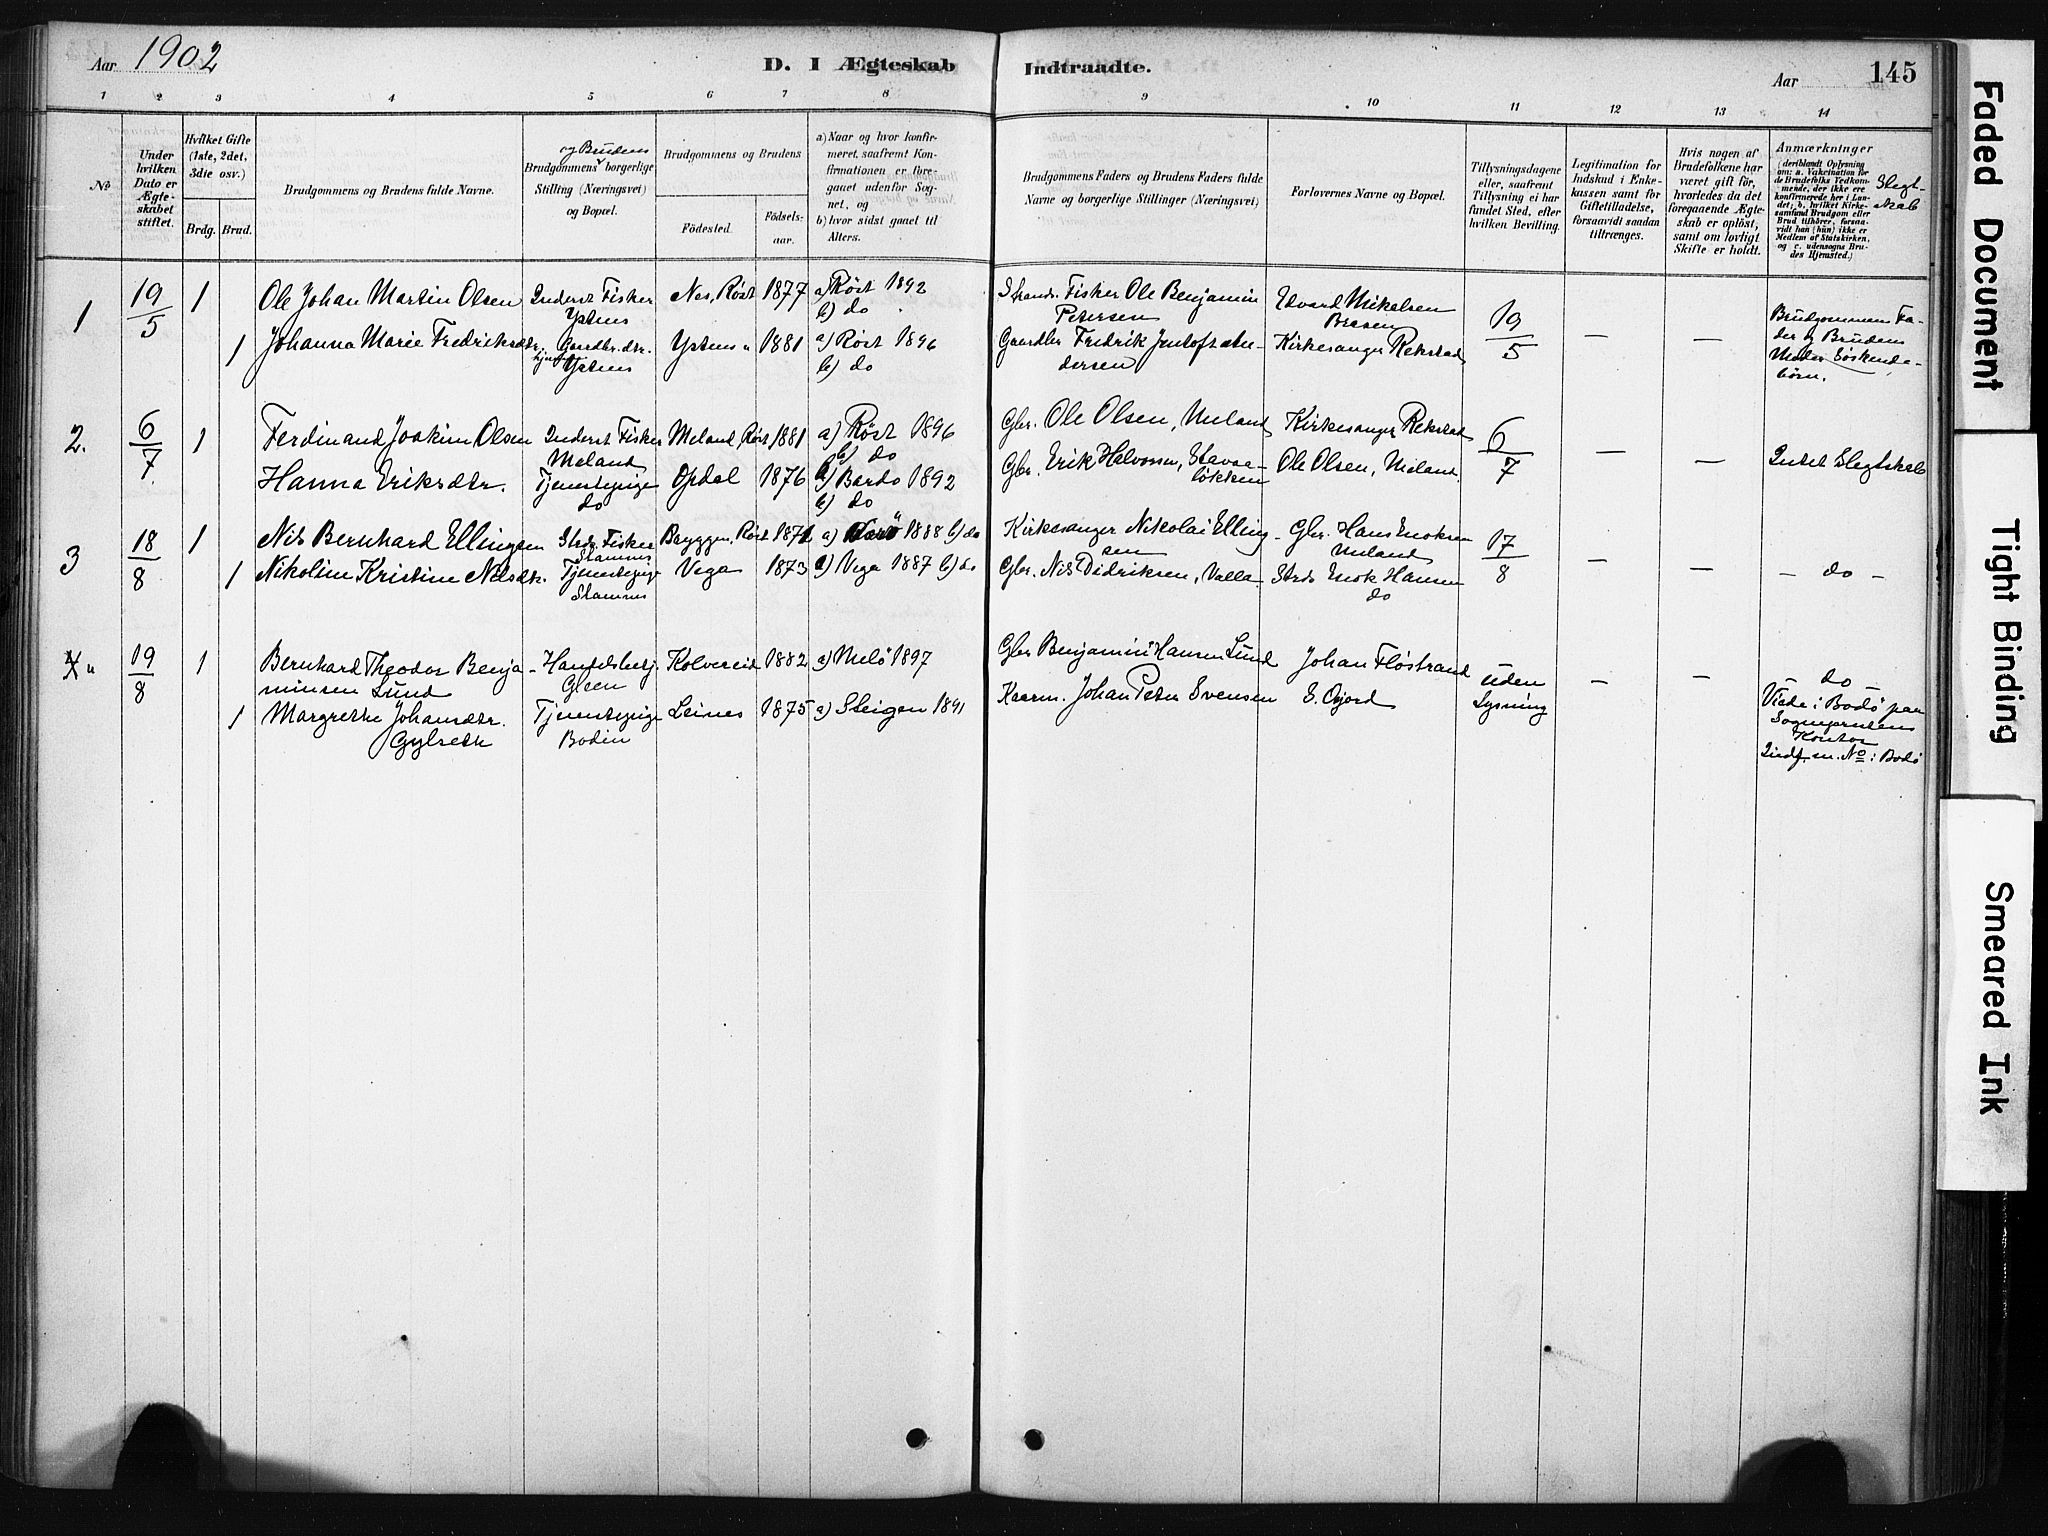 Aar 1902
D. I Ægteskab Indtraadte.
Aar
145
1 2 3 4 5 6 7 8 9 10 11 12 13 14
No
Under hvilken Dato er Ægteskabet stiftet.
Hvilket Gifte (1ste, 2det, 3die osv.)
Brdg. Brud.
Brudgommens og Brudens fulde Navne.
og Brudens
Brudgommens borgerlige Stilling (Næringsvei) og Bopæl.
Brudgommens og Brudens
Fødested.
Fødselsaar.
a) Naar og hvor konfirmeret, saafremt Konfirmationen er foregaaet udenfor Sognet, og
b) hvor sidst gaaet til Alters.
Brudgommens Faders og Brudens Faders fulde Navne og borgerlige Stillinger (Næringsvei)
Forlovernes Navne og Bopæl.
Tillysningsdagene eller, saafremt Tillysning ei har fundet Sted, efter hvilken Bevilling.
Legitimation for Indskud i Enkekassen samt for Giftetilladelse, forsaavidt saadan tiltrænges.
Hvis nogen af Brudefolkene har været gift før, hvorledes da det foregaaende Ægteskab er opløst, samt om lovligt Skifte er holdt.
Anmærkninger
(deriblandt Oplysning om: a. Vaccination for de Brudefolks Vedkommende, der ikke ere konfirmerede her i Landet; b. hvilket Kirkesamfund Brudgom eller Brud tilhører, forsaavidt han (hun) ikke er Medlem af Statskirken, og c. udensogns Brudes Hjemsted.)
Slegtskab
1 19/5 1 Ole Johan Martin Olsen
Inderst Fisker Ystnes
Nes, Røst 1877 a) Røst 1892
b) do
Strands. Fisker Ole Benjamin Petersen
Edvard Mikelsen
19/5 — —
Brudgommens Fader og Brudens Moder Søskendebørn.
1 Johanna Marie Fredriksdtr.
Gaardbr. dtr. Ystnes
Ystnes 1881 a) Røst 1896
b) do
Gaardbr Fredrik Jentoft Andersen
Kirkesanger Rekstad
2. 6/7 1 Ferdinand Joakim Olsen
Inderst Fisker Meland
Meland, Røst 1881 a) Røst 1896
b) do
Gbr. Ole Olsen, Meland
Kirkesanger Rekstad
6/7 — —
Intet Slegtskab
Hanna Eriksdtr.
Tjenestepige do
Opdal 1876 a) Bardo 1892
b) do
Gbr. Erik Halvorsen,
Ole Olsen, Meland.
3 18/8 1 Nils Bernhard Ellingsen
Strds. Fisker Stamnes
Bryggen, Røst 1872 a) 1888 b) do
Kirkesanger Nikolai Ellingsen
Gbr. Hans Enoksen Meland
17/8 — —
— do —
1 Nikoline Kristine Nilsdtr.
Tjenestepige Stamnes
Vega 1873 a) Vega 1887 b) do
Gbr. Nils Didriksen, Valla
Strds Enok Hansen do
4 19/8 1 Bernhard Theodor Benjaminsen Lund
Handelsbetj. Gleen
Kolvereid 1882 a) Melø 1897
Gbr Benjamin Hansen Lund
Johan Fløstrand
uden Lysning
— —
do
1 Margrethe Johansdtr. Gylseth
Tjenestepige Bodin
Leines 1875 a) Steigen 1891
Kaarm. Johan Peter Svensen
S. Opjord
Viede i Bodø paa Sogneprestens Kontor
Indf. m. No i Bodø
Faded Document
Tight Binding
Smeared Ink